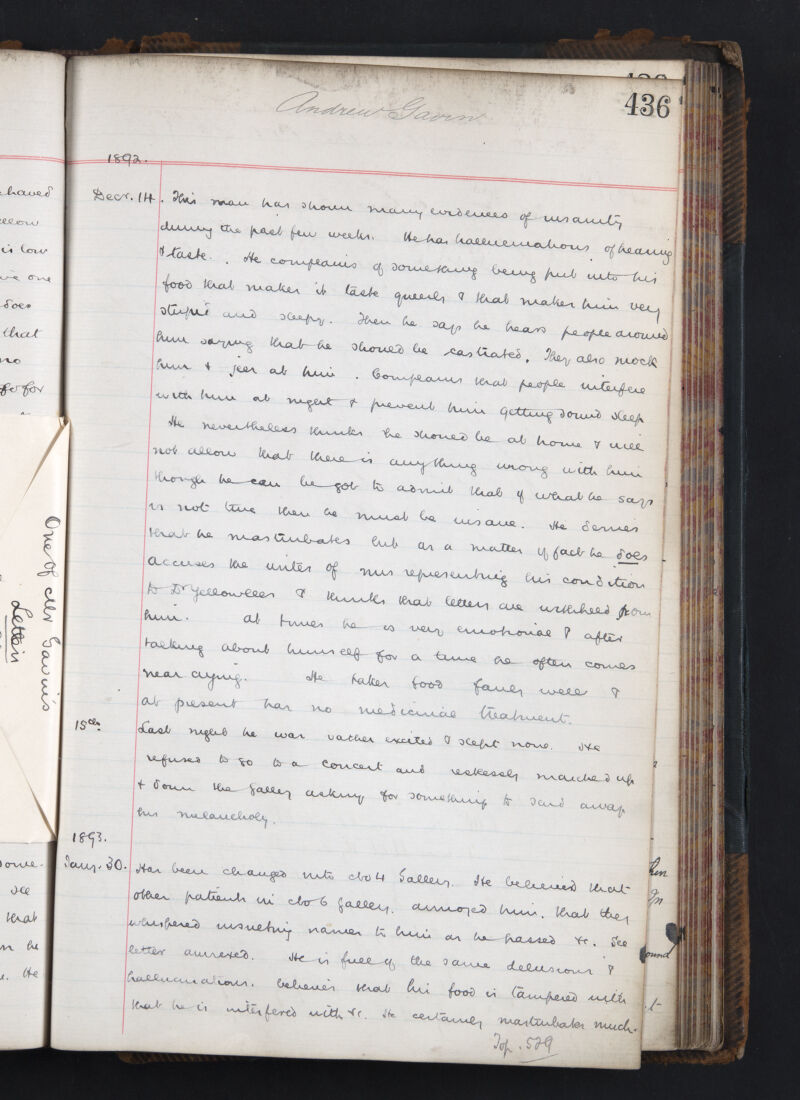 436
Andrew Gavin
1892.
Decr. 14. This man has shown many evidences of insanity
during the past few weeks. He has hallucinations of hearing
& taste. He complains of something being put into his
food that makes it taste queerly & that makes him very
stupid and sleepy. Then he says he hears people around
him saying that he should be castrated. They also mock
him & jeer at him. Complains that people interfere
with him at night & prevent him getting sound sleep
He nevertheless thinks he should be at home & will
not allow that there is anything wrong with him
though he can be got to admit that if what he says
is not true then he must be insane. He denies
that he masturbates but as a matter of fact he does
accuses the writer of misrepresenting his condition
to Dr Yellowlees & thinks that letters are withheld from
him. At times he is very emotional & after
talking about himself for a time he often comes
near crying. He takes food fairly well &
at present has no medicinal treatment.
15th. Last night he was rather excited & slept none. He
refused to go to a concert and restlessly marched up
& down the gallery asking for something to send away
his melancholy.
1893.
Jany. 30. Has been changed into No 4 Gallery. He believed that
other patients in No 6 gallery annoyed him, that they
whispered insulting names to him as he passed &c. See
letter annexed. He is full of the same delusions &
hallucinations. believes that his food is tampered with
that he is interfered with &c. He certainly masturbates much.
To p. 529
haved
is low
one
does
that
no
for
One of Mr Gavin's
Letters
some.
see
that
he
He
ound